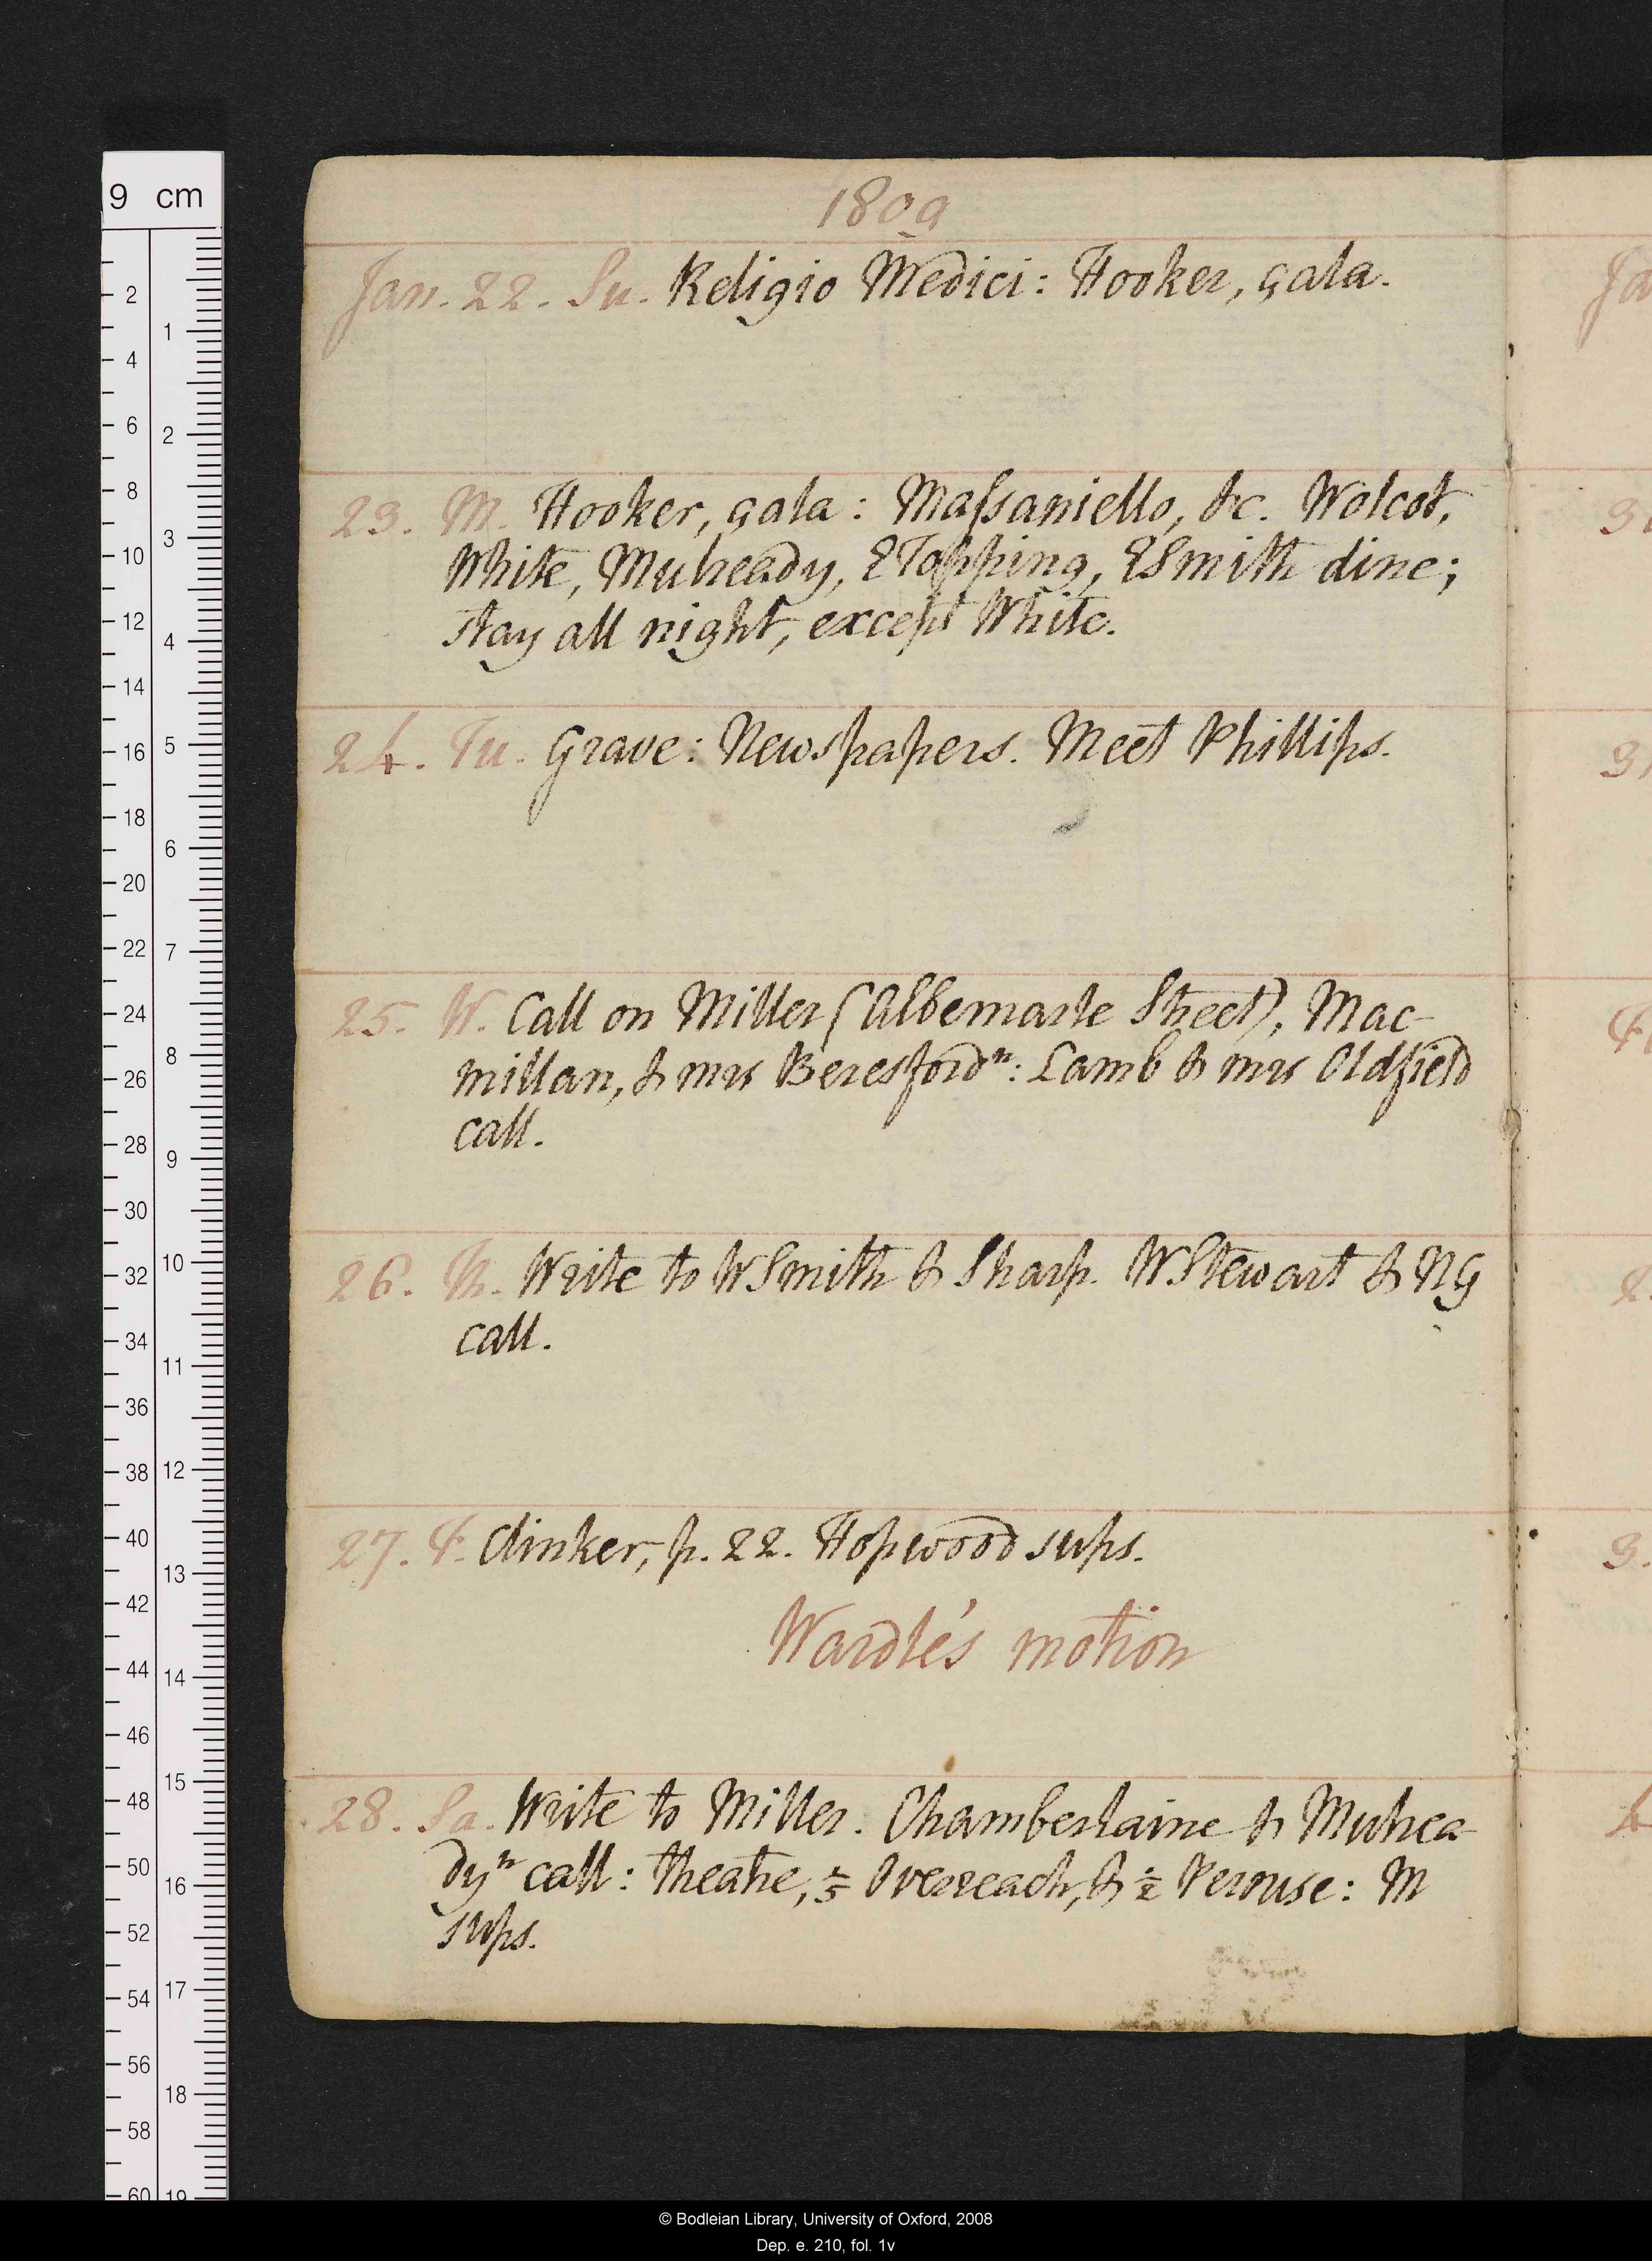 1809
Jan. 22. Su. Religio Medici: Hooker, çala.
23. M. Hooker, çala: Maſsaniello, &c. Wolcot,
White, Mulready, E Topping, E Smith dine;
stay all night, except White.
24. Tu. Grave: Newspapers. Meet Phillips.
25. W. Call on Miller (Albemarle Street), Mac-
millan, & mrs Beresford n: Lamb & mrs Oldfield
call.
26. Th. Write to W Smith & Sharp. W Stewart & NG
call.
27. F. Clinker, p. 22. Hopwood sups.
Wardle's motion
28. Sa. Write to Miller. Chamberlaine & Mulrea-
dy n call: theatre, Overreach, & Perouse: M
sups.
9 cm
2
4
6
8
10
12
14
16
18
20
22
24
26
28
30
32
34
36
38
40
42
44
46
48
50
52
54
56
58
60
1
2
3
4
5
6
7
8
9
10
11
12
13
14
15
16
17
18
19
© Bodleian Library, University of Oxford, 2008
Dep. e. 210, fol. 1v